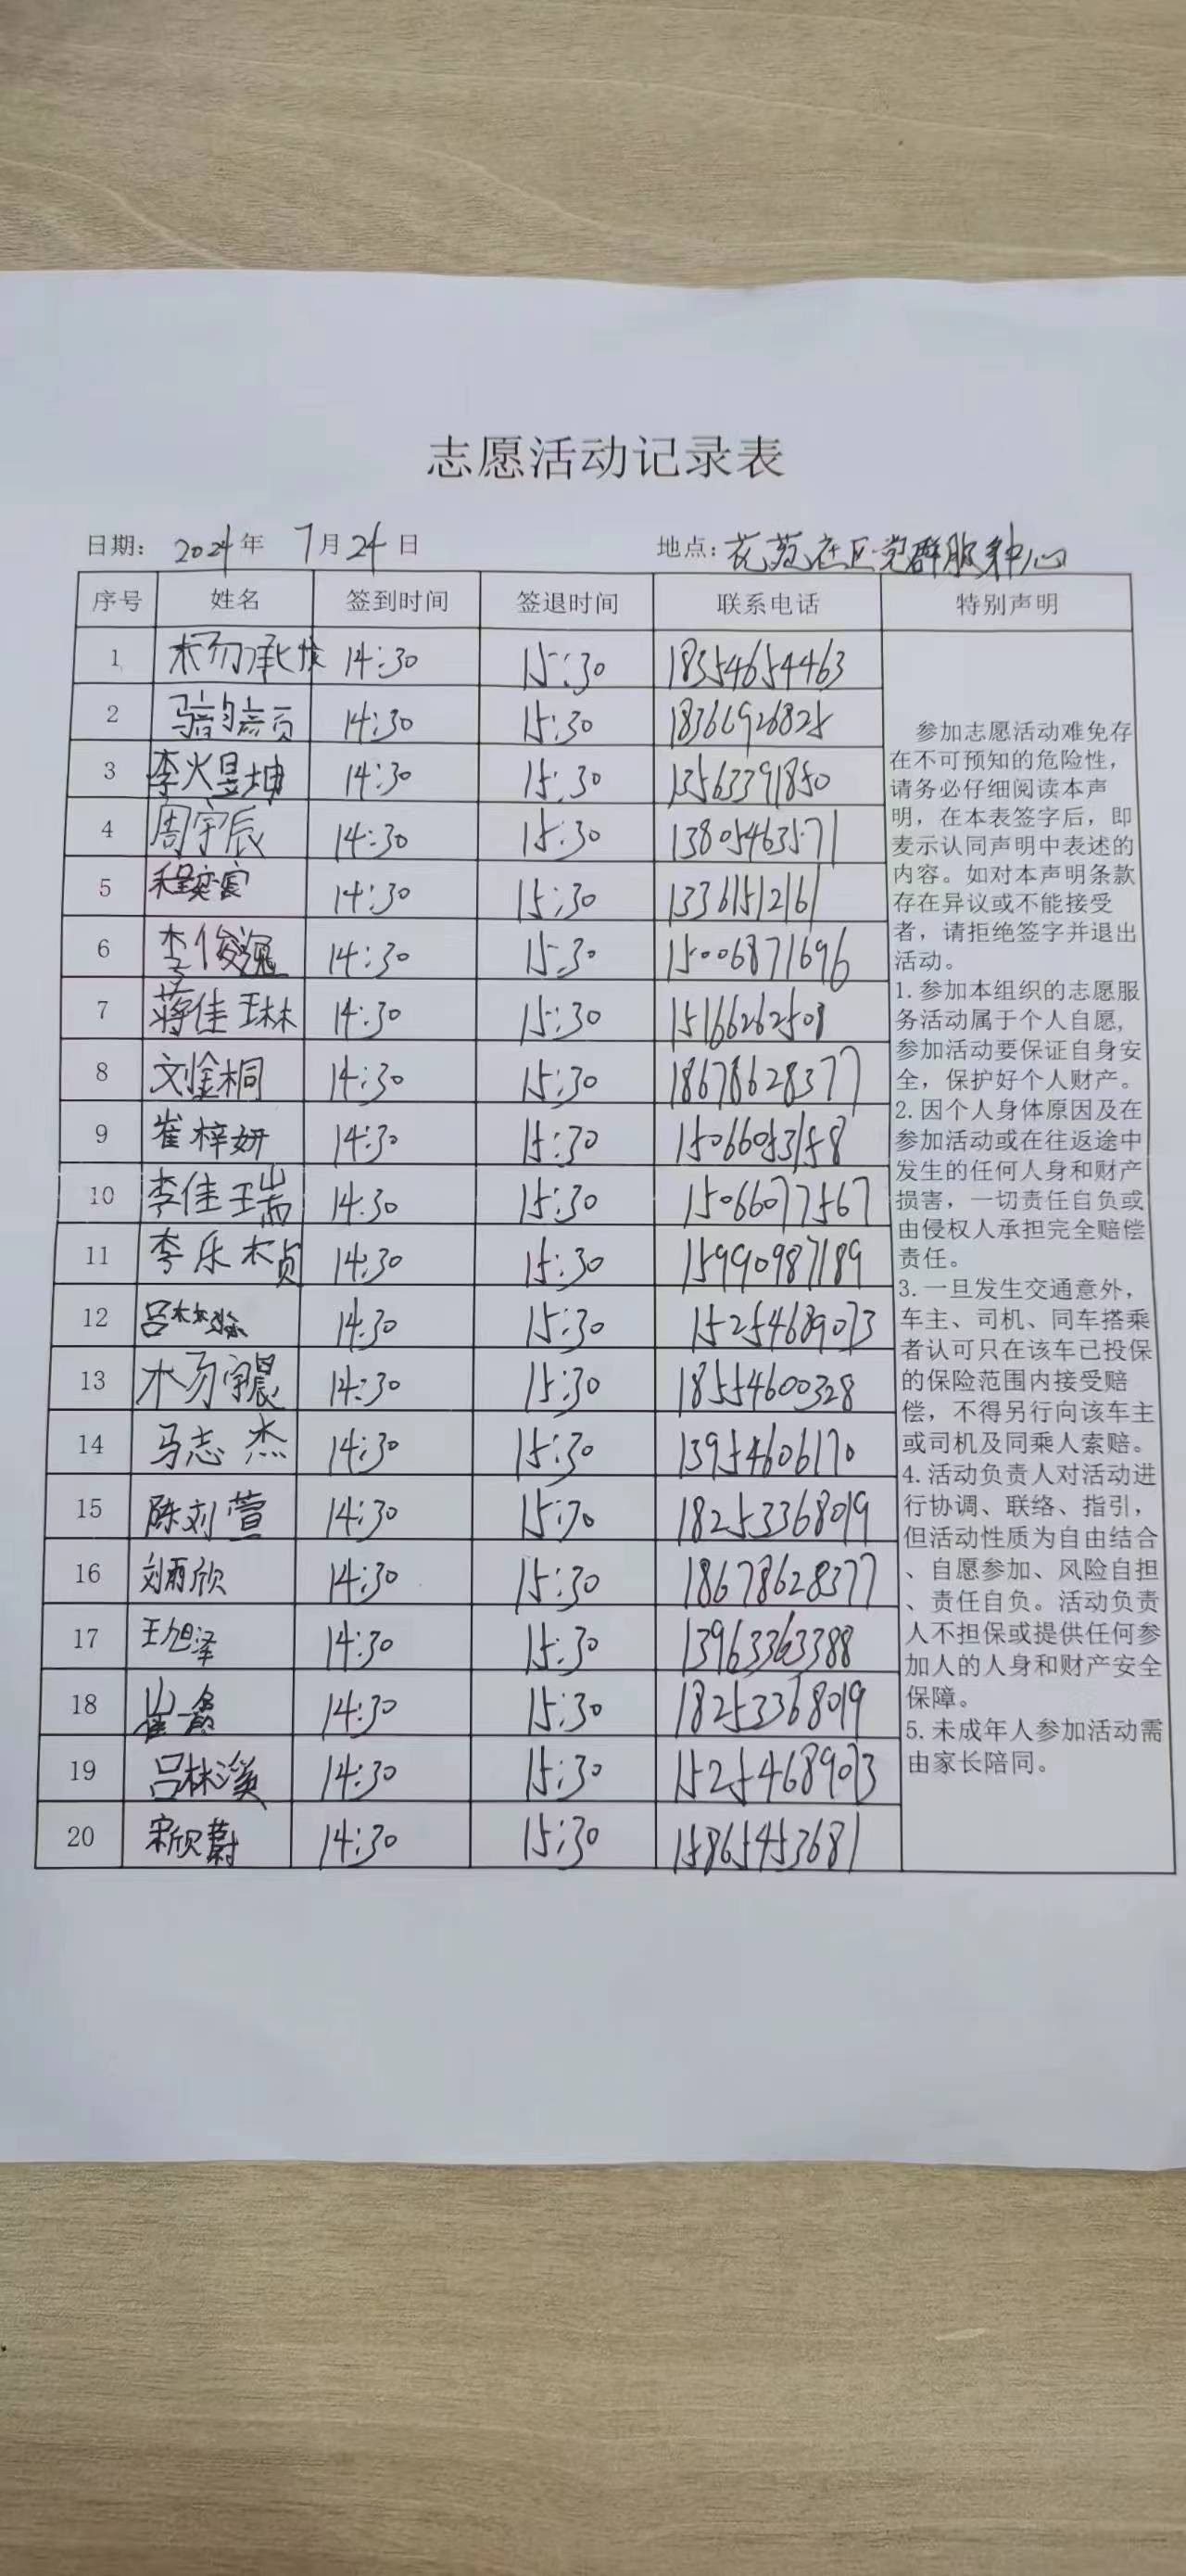 志愿活动记录表
日期：2024年 7月24日 地点：花苑社区党群服务中心
序号 姓名 签到时间 签退时间 联系电话 特别声明
1 杨承 14:30 15:30 18354654463
2 14:30 15:30 18366926825
3 李焜坤 14:30 15:30 13563391850
4 周宇辰 14:30 15:30 13805463571
5 程奕宸 14:30 15:30 13361512161
6 李俊逸 14:30 15:30 15006871696
7 蒋佳琳 14:30 15:30 15166262508
8 刘金桐 14:30 15:30 18678628377
9 崔梓妍 14:30 15:30 15066053158
10 李佳瑞 14:30 15:30 15066077567
11 李乐桢 14:30 15:30 15990987189
12 吕林 14:30 15:30 15254689073
13 杨宇晨 14:30 15:30 18554600328
14 马志杰 14:30 15:30 13954606170
15 陈刘萱 14:30 15:30 18253368019
16 刘雨欣 14:30 15:30 18678628377
17 王旭泽 14:30 15:30 13963363388
18 崔一 14:30 15:30 18253368019
19 吕林溪 14:30 15:30 15254689073
20 宋欣蔚 14:30 15:30 15865453681
参加志愿活动难免存
在不可预知的危险性，
请务必仔细阅读本声
明，在本表签字后，即
麦示认同声明中表述的
内容。如对本声明条款
存在异议或不能接受
者，请拒绝签字并退出
活动。
1.参加本组织的志愿服
务活动属于个人自愿，
参加活动要保证自身安
全，保护好个人财产。
2.因个人身体原因及在
参加活动或在往返途中
发生的任何人身和财产
损害，一切责任自负或
由侵权人承担完全赔偿
责任。
3.一旦发生交通意外，
车主、司机、同车搭乘
者认可只在该车已投保
的保险范围内接受赔
偿，不得另行向该车主
或司机及同乘人索赔。
4.活动负责人对活动进
行协调、联络、指引，
但活动性质为自由结合
、自愿参加、风险自担
、责任自负。活动负责
人不担保或提供任何参
加人的人身和财产安全
保障。
5.未成年人参加活动需
由家长陪同。